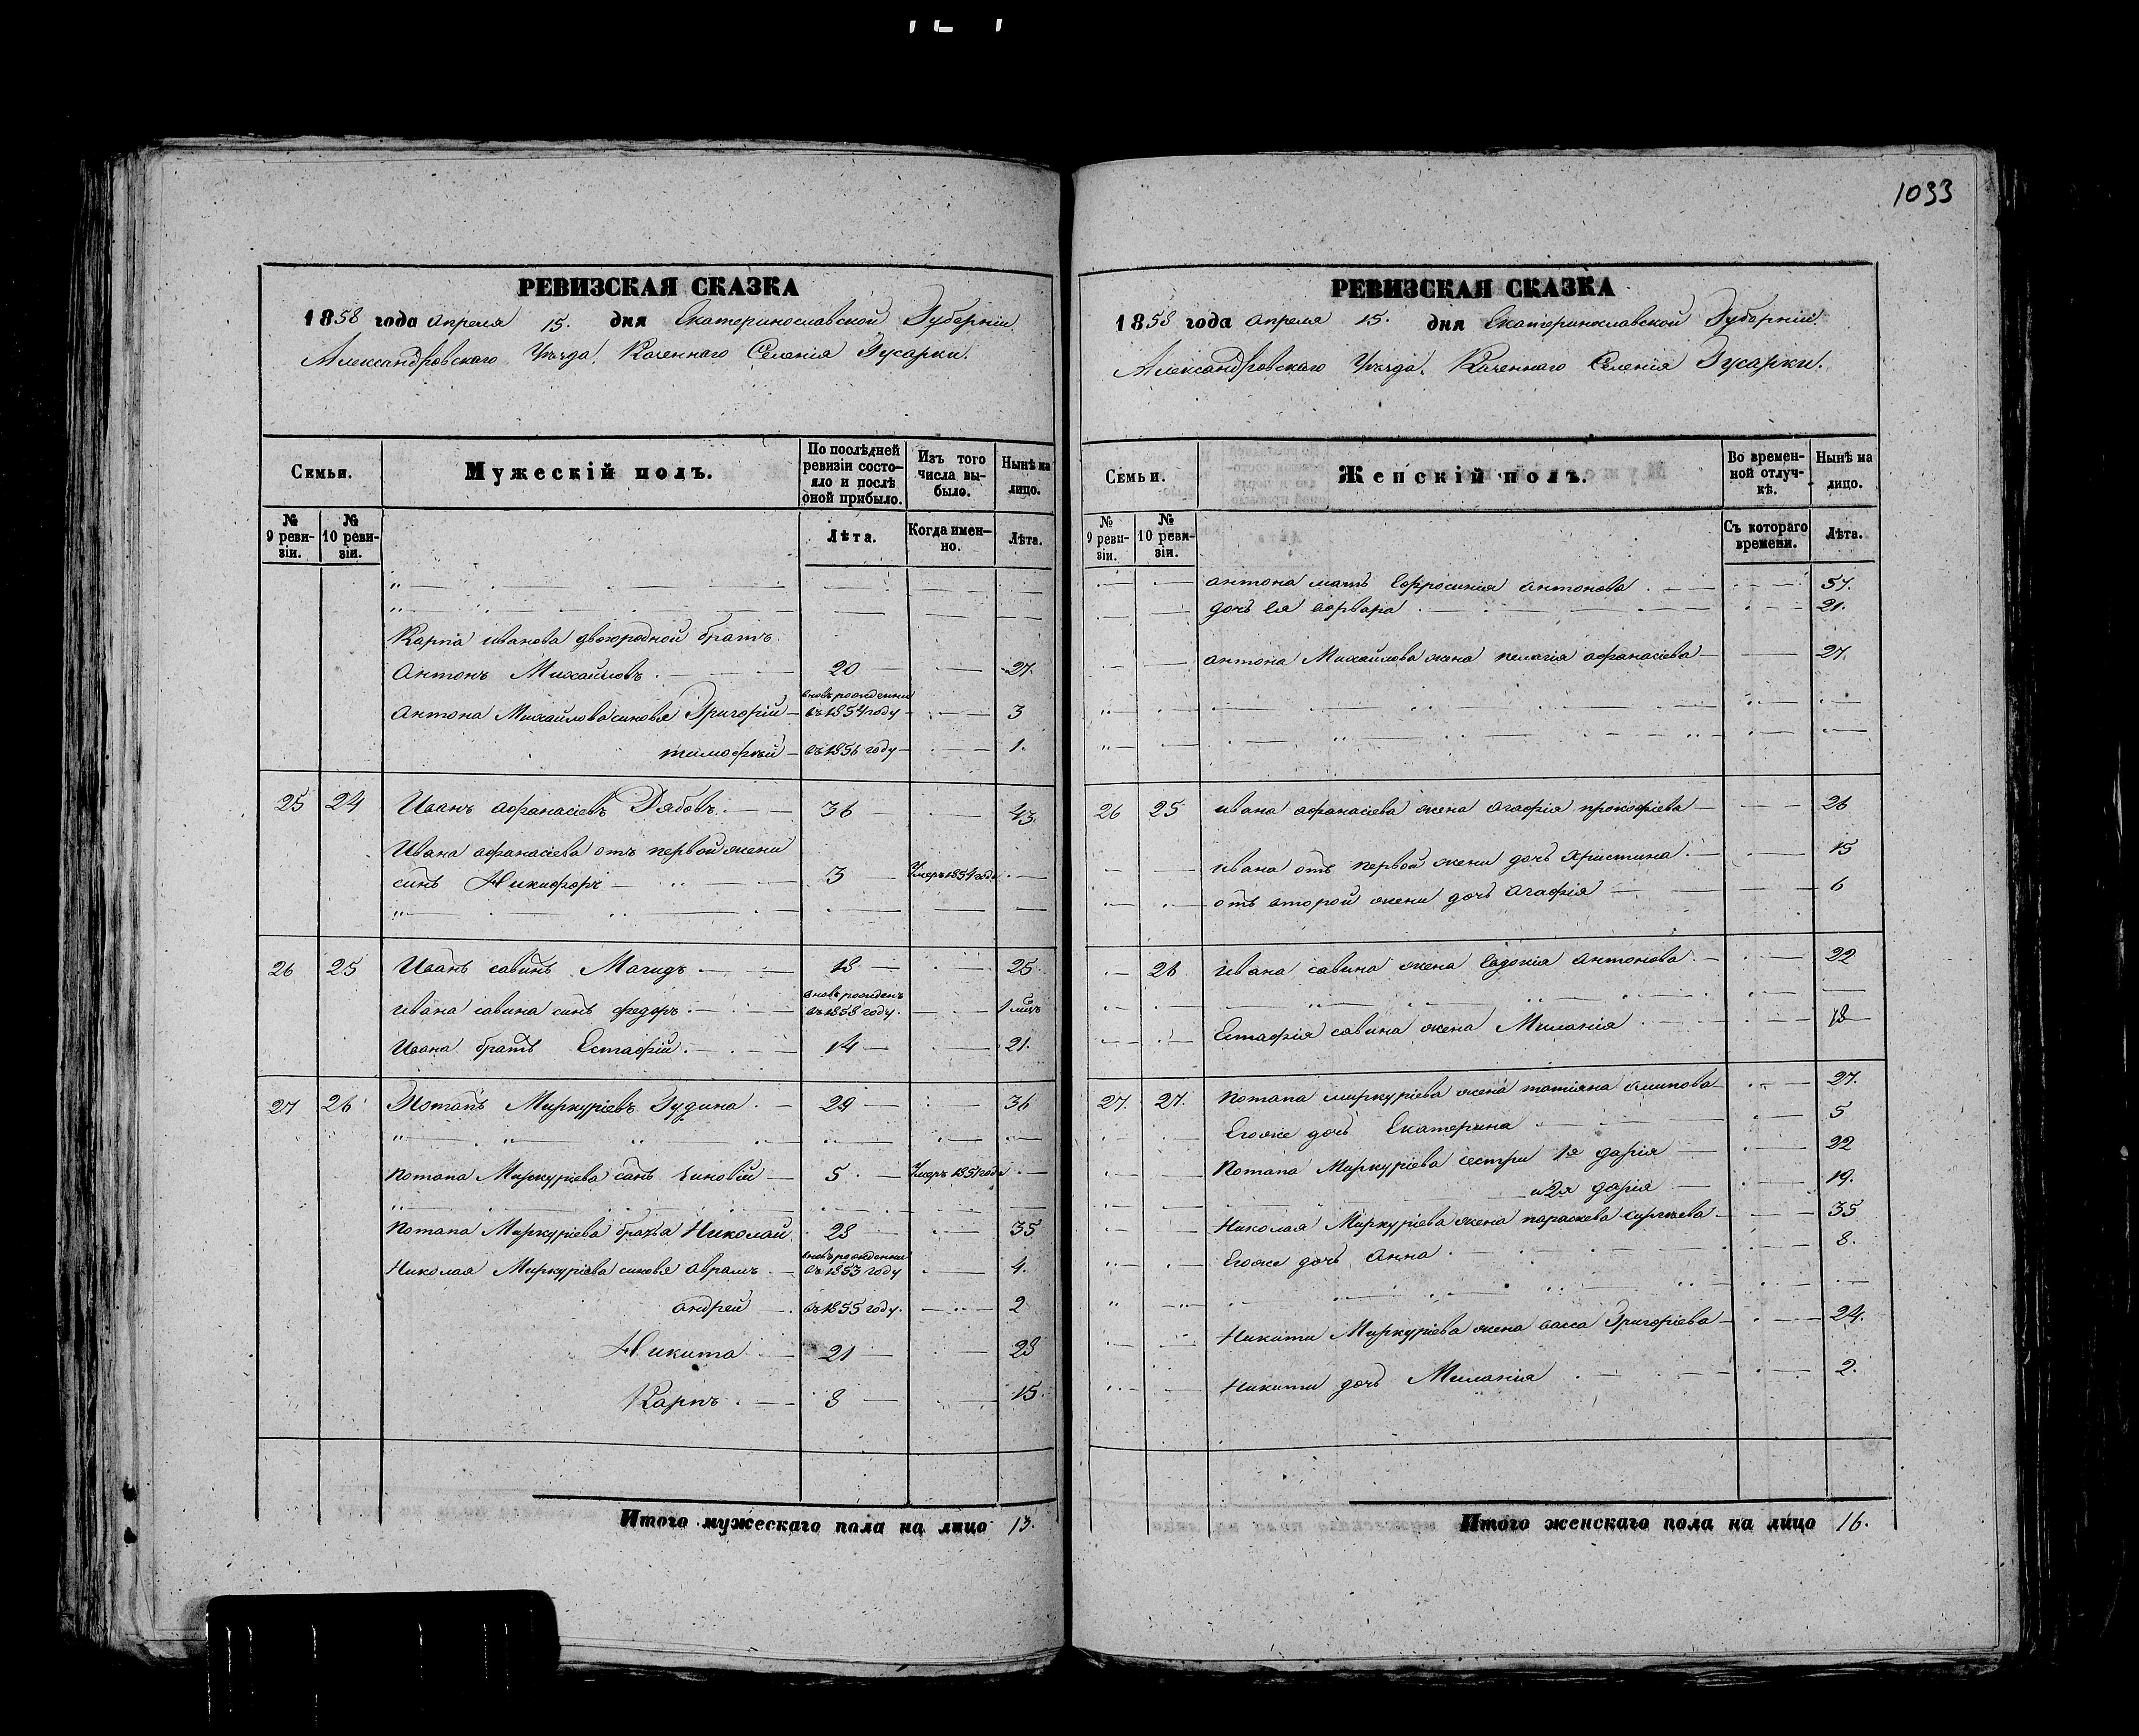 1033
РЕВИЗСКАЯ СКАЗКА
1858 года апреля 15. дня Екатеринославской Губернии.
Александровскаго Уезда. Казеннаго Селенія Гусарки.
Семьи.
Мужескій полъ.
По послѣдней ревизіи состояло и послѣ оной прибыло.
Изъ того числа выбыло.
Нынѣ на лицо.
№ 9 ревизіи.
№ 10 ревизіи.
Лѣта.
Когда именно.
Лѣта.
Карпа иванова двоюродной братъ
Антонъ Михайловъ 20 27.
Антона Михайлова синовья Григорій вновь рожденни въ 1854 году 3
тимофей въ 1856 году 1.
25 24 Иванъ афанасіевъ Дябовъ. 36 43.
Ивана афанасіева отъ первой жени
синъ Никифоръ 3 Умеръ 1854 года
26 25 Иванъ савинъ Магидъ 18 25.
ивана савина синъ федоръ. вновь рожденъ въ 1858 году. 1 мцъ
Ивана братъ Естафій. 14 21.
27 26 Потапъ Меркуріевъ Гудина. 29 36
Потапа Меркуріева синъ Зиновій 5. Умеръ 1851 года
Потапа Меркуріева братья Николай 28 35
Николая Меркуріева синовья аврамъ вновь рожденни въ 1853 году 4.
андрей въ 1855 году. 2
Никита 21 28
Карпъ 8 15.
Итого мужескаго пола на лицо 13.
РЕВИЗСКАЯ СКАЗКА
1858 года апреля 15. дня Екатеринославской Губерніи.
Александровскаго Уезда. Казеннаго Селенія Гусарки.
Семьи.
Женскій полъ.
Во временной отлучкѣ.
Нынѣ на лицо.
№ 9 ревизіи.
№ 10 ревизіи.
Съ котораго времени.
Лѣта.
антона мать Ефросинія антонова 57.
дочь ея варвара 21.
антона Михайлова жена пелагія афанасіева 27.
26 25 ивана афанасіева жена агафія прокофіева 26
ивана отъ первой жени дочь христина. 15
отъ второй жени дочь агафія 6
26 ивана савина жена евдокія антонова 22
Естафія савина жена Миланія 18
27. 27. Потапа меркуріева жена татіяна осипова 27.
Егоже дочь Екатерина 5
Потапа Меркуріева сестри 1я дарія 22
и 2я дарія 19.
Николая Меркуріева жена параскева сиргъева 35
Егоже дочь анна 8.
Никити Меркуріева жена васса Григоріева 24.
Никити дочь Миланія 2.
Итого женскаго пола на лицо 16.